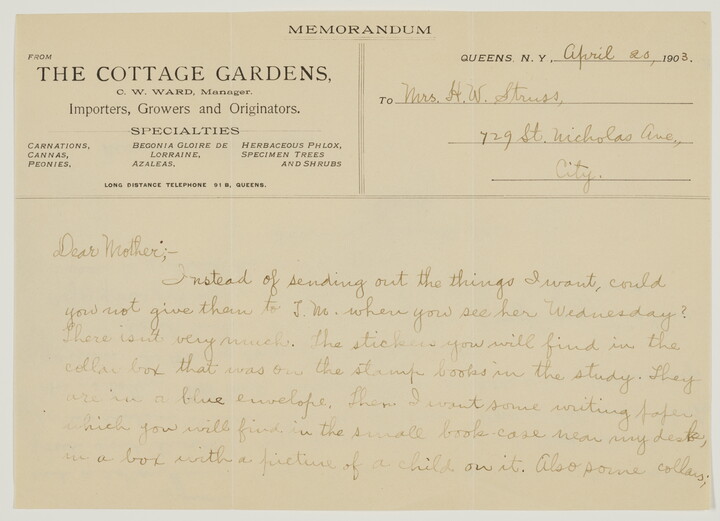 MEMORANDUM
FROM
THE COTTAGE GARDENS,
C. W. WARD, Manager.
Importers, Growers and Originators.
SPECIALTIES
CARNATIONS,
CANNAS,
PEONIES.
BEGONIA GLOIRE DE
LORRAINE,
AZALEAS.
HERBACEOUS PHLOX,
SPECIMEN TREES
AND SHRUBS
LONG DISTANCE TELEPHONE 91 B, QUEENS.
QUEENS, N. Y., April 20, 1903.
TO Mrs. H. W. Struss,
729 St. Nicholas Ave.,
City.
Dear Mother;—
Instead of sending out the things I want, could
you not give them to T. M. when you see her Wednesday?
There isnt very much. The stickers you will find in the
collar box that was on the stamp books in the study. They
are in a blue envelope. Then I want some writing paper
which you will find in the small book-case near my desk,
in a box with a picture of a child on it. Also some collars;